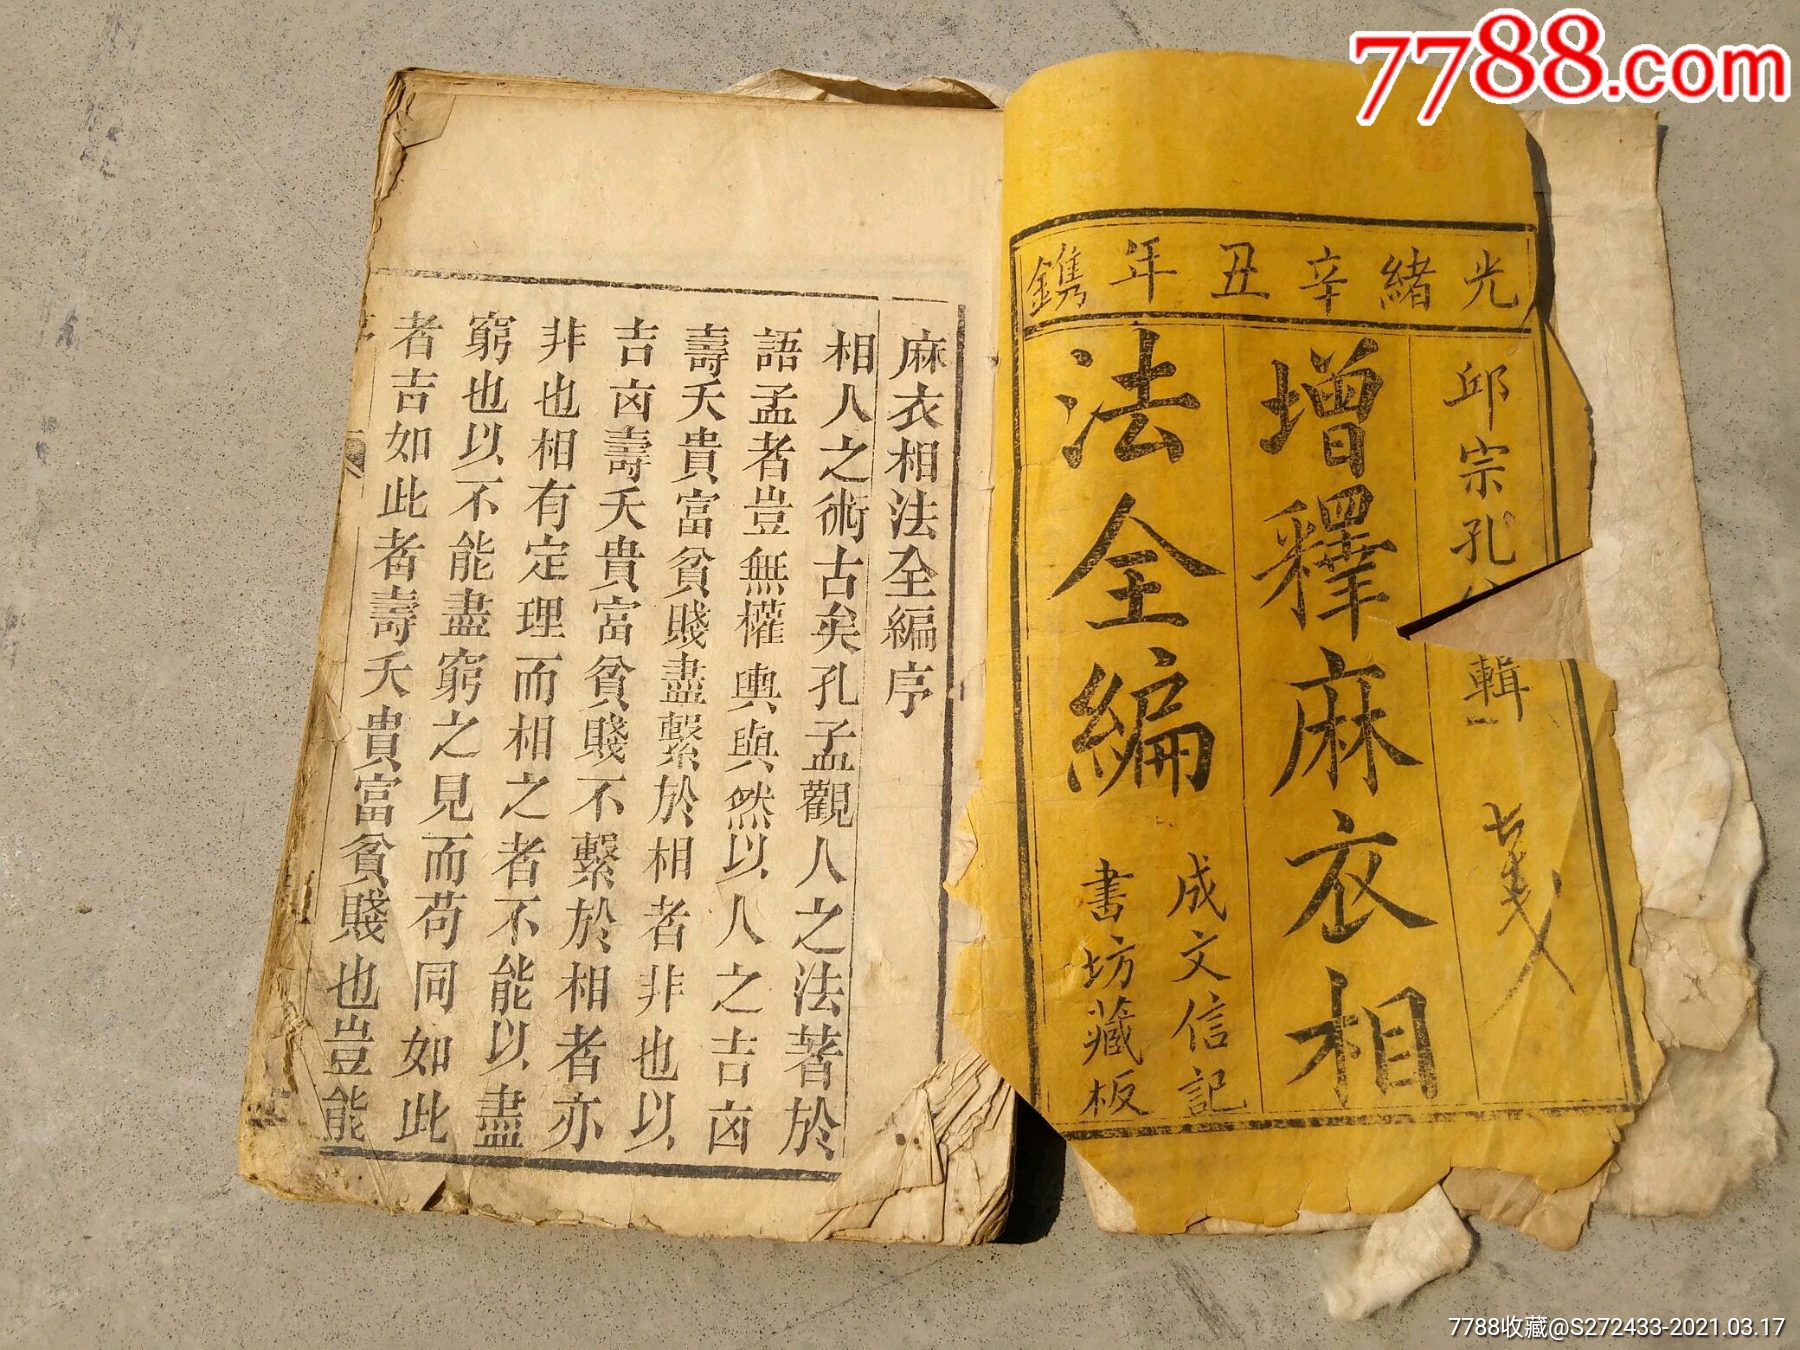 7788.com
光緒辛丑年鐫
邱宗孔 輯
增釋麻衣相
法全編
成文信記
書坊藏板
麻衣相法全編序
相人之術古矣孔孟觀人之法著於
語孟者豈無權輿與然以人之吉凶
壽夭貴富貧賤盡繫於相者非也以
吉凶壽夭貴富貧賤不繫於相者亦
非也相有定理而相之者不能以盡
窮也以不能盡窮之見而苟同如此
者吉如此者壽夭貴富貧賤也豈能
7788收藏@S272433-2021.03.17